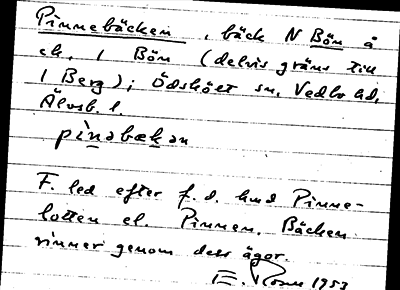 Pinnebäcken, bäck N Bön å
ek. 1 Bön (delvis gräns till
1 Berg); Ödskölt sn, Vedbo hd,
Älvsb. l.
pìnəbækən
F. led efter f.d. lmd Pinne-
lotten el. Pinnen. Bäcken
rinner genom dess ägor.
E. 1953